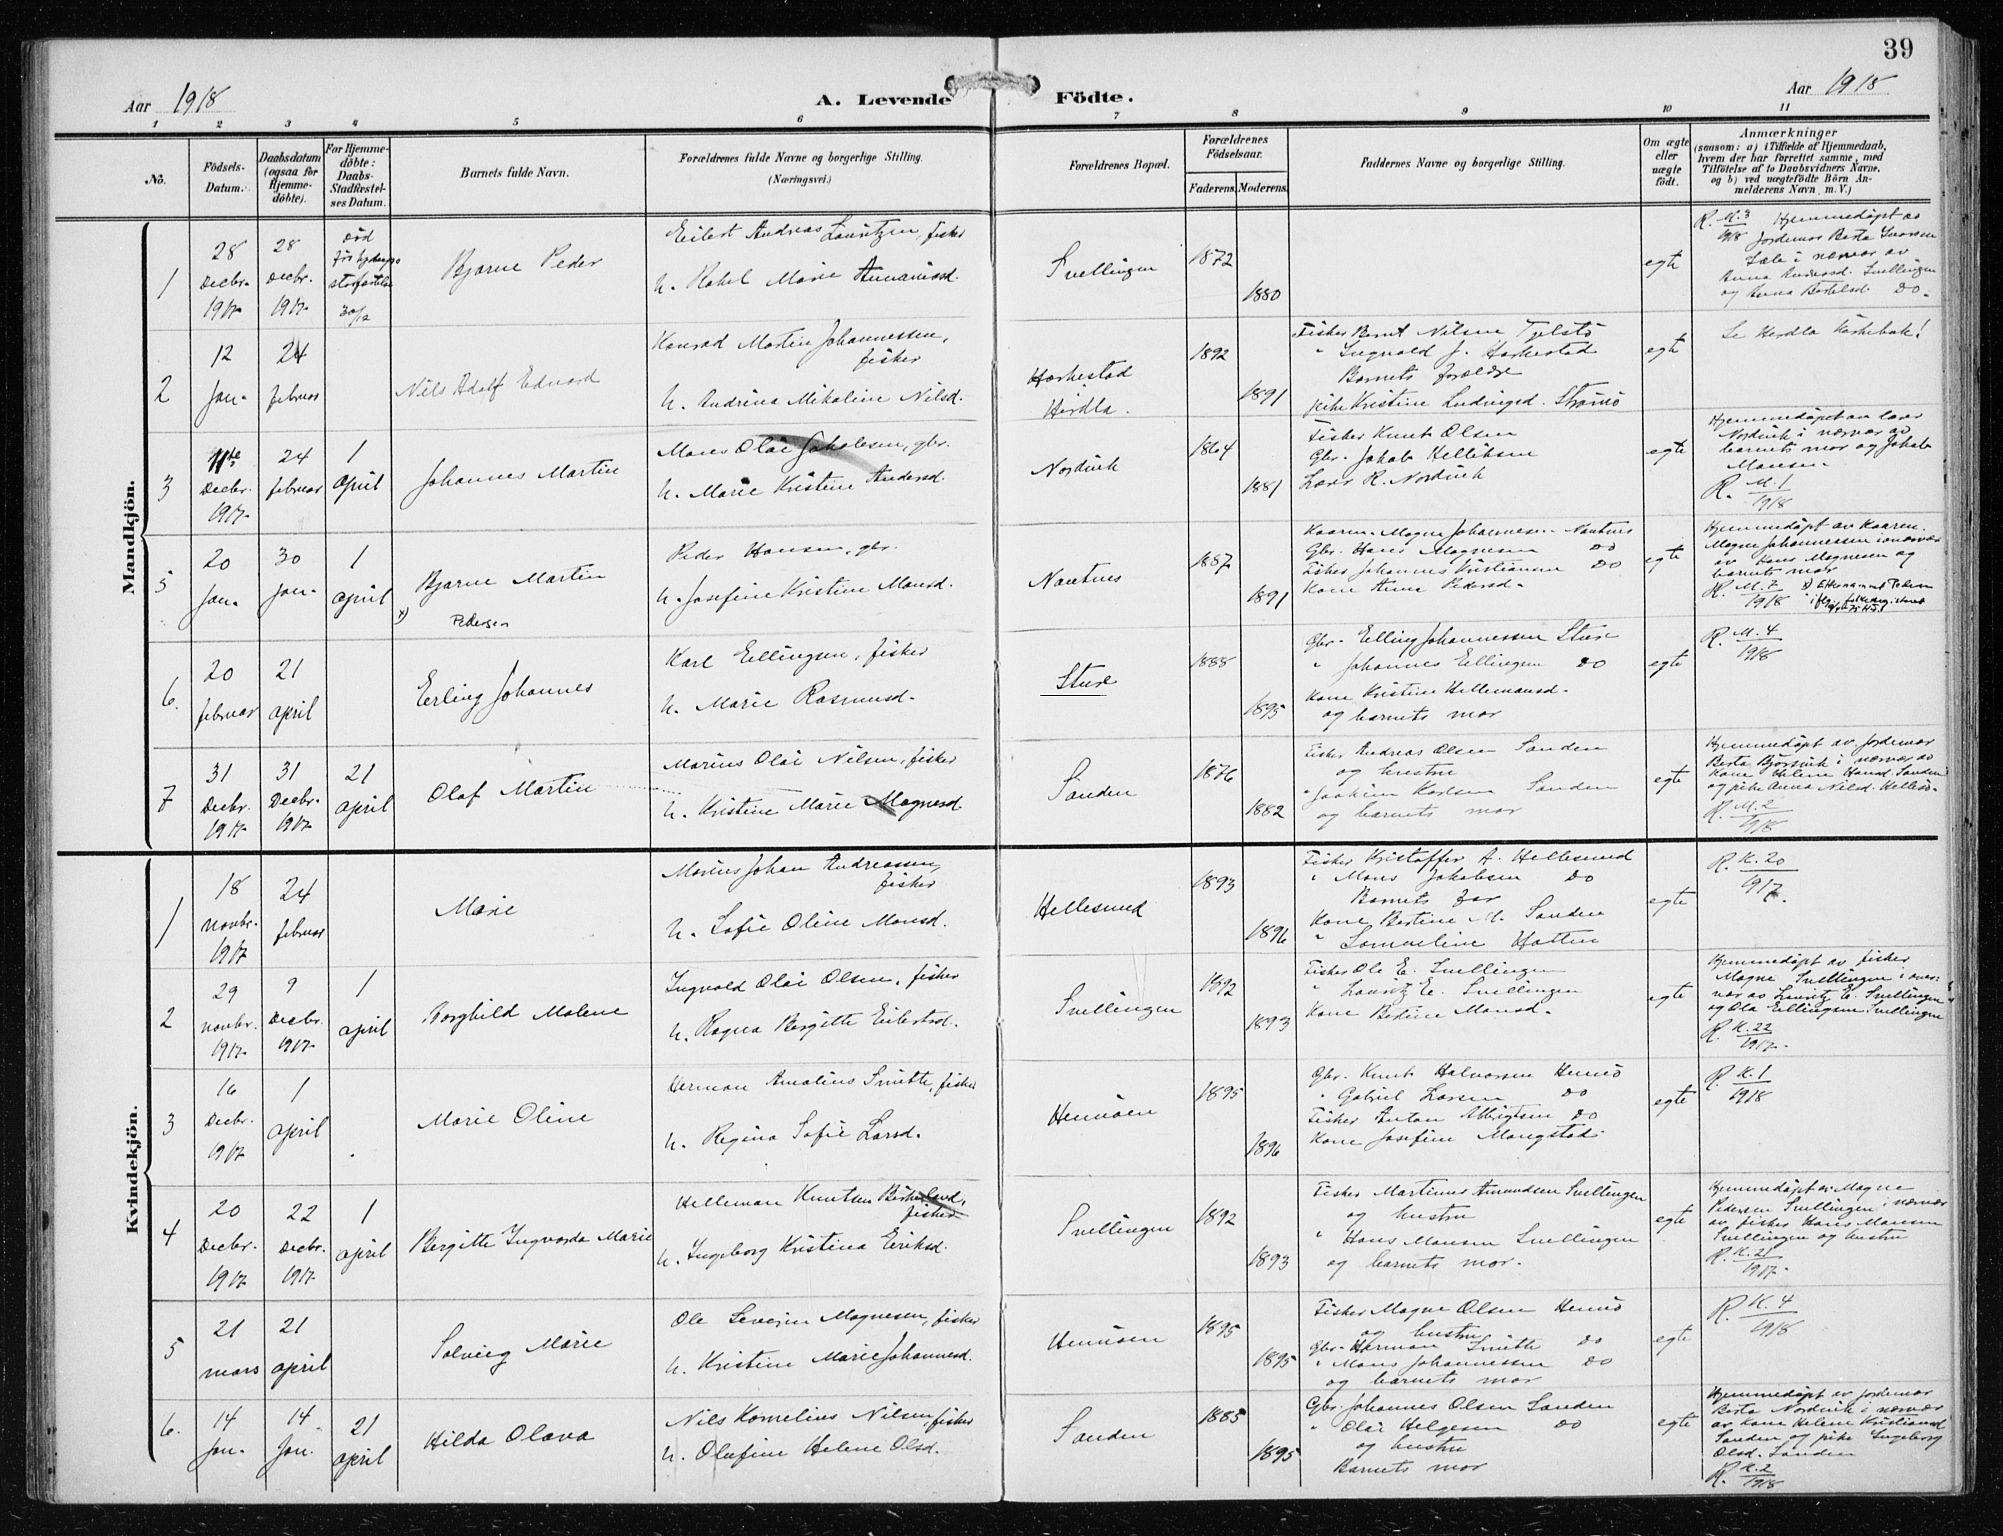 39
Aar 1918
A. Levende Födte.
Aar 1918
1 2 3 4 5 6 7 8 9 10 11
No.
Födsels-Datum.
Daabsdatum (ogsaa for Hjemme-döbte).
For Hjemme-döbte: Daabs-Stadfæstel-ses Datum.
Barnets fulde Navn.
Forældrenes fulde Navne og borgerlige Stilling.
(Næringsvei.)
Forældrenes Bopæl.
Forældrenes Födselsaar.
Faderens. Moderens.
Faddernes Navne og borgerlige Stilling.
Om ægte eller uægte födt.
Anmærkninger
(saasom: a) i Tilfælde af Hjemmedaab,
hvem der har forrettet samme, med
Tilföielse af to Daabsvidners Navne,
og b) ved uægtefödte Börn An-
melderens Navn m. V.)
Mandkjön.
1
28 Decbr. 1917
28 Decbr. 1917
30/12
Bjarne Peder
Eilert Andreas Lauritzen, fisker
h. Rakel Marie Ananiasd.
Svellingen
1872
1880
egte
R. M. 3 1918 Hjemmedøpt av
Jordemor Berta
i nærvær av
Anna Andersd. Svellingen
og Anna Bertelsd. Do.
2
12 Jan.
24 februar
Nils Adolf Edvard
Konrad Martin Johannessen,
fisker
h. Andrina Mikaline Nilsd.
Harkestad
Herdla.
1892
1891
Fisker Bernt Nilsen
" Ingvald J. Harkestad
Barnets forældre
pike Kristine Ludvigsd. Strømø
egte
Se Herdla Kirkebok!
3
11te Decbr. 1917
24 februar
1 april
Johannes Martin
Mons Olai Jakobsen, gbr.
h. Marie Kristine Andersd.
Nordvik
1864
1881
Fisker Knut Olsen
Gbr. Jakob Helliksen
Lærer R. Nordvik
egte
Hjemmedøpt av lærer
Nordvik i nærvær av
barnets mor og Jakob
Monsen
R. M. 1 1918
5
20 Jan.
30 Jan.
1 april
Bjarne Martin
x) Pedersen
Peder Hansen, gbr.
h. Josefine Kristine Monsd.
Nautnes
1887
1891
Kaarem. Magne Johannesen Nautnes
Gbr. Hans Magnesen Do
Fisker Johannes Kristiansen Do
Kone Anna Pedersd.
egte
Hjemmedøpt av Kaarem.
Magne Johannessen i nærvær
av Hans Magnesen og
barnets mor
R. M. 7 1918 x) Etternavnet Pedersen
i flg. folkeregisteret
6.
20 februar
21 april
Erling Johannes
Karl Ellingsen, fisker
h. Marie Rasmusd.
Sture
1888
1895
Gbr. Elling Johannessen Sture
" Johannes Ellingsen Do
Kone Kristine Hellemansd.
og barnets mor
egte
R. M. 4 1918
7
31 Decbr. 1917
31 Decbr. 1917
21 april
Olaf Martin
Marius Olai Nilsen, fisker
h. Kristine Marie Magnesd.
Sanden
1876
1882
Fisker Andreas Olsen Sanden
og hustru
" Joakim Karlsen Sanden
og barnets mor
egte
Hjemmedøpt av Jordemor
Berta Bjørsvik i nærvær av
Kone Helene Hansd. Sanden
og pike Anna Nilsd. Hellesø.
R. M. 2 1918
Kvindekjön.
1
18 novbr. 1917
24 februar
Marie
Marius Johan Andreassen,
fisker
h. Sofie Oline Monsd.
Hellesund
1893
1896
Fisker Kristoffer A. Hellesund
" Mons Jakobsen Do
Barnets far
Kone Bertine M. Sanden
" Samueline Hatten
egte
R. K. 20 1917.
2
29 novbr. 1917
9 Decbr. 1917
1 april
Borghild Malene
Ingvald Olai Olsen, fisker
h. Ragna Bergitte Eilertsd.
Svellingen
1892
1893
Fisker Ole E. Svellingen
" Lauritz E. Svellingen
Kone Bertine Monsd.
egte
Hjemmedøpt av fisker
Magne Svellingen i nær-
vær av Lauritz E. Svellingen
og Ola Ellingsen Svellingen
R. K. 22 1917.
3
16 Decbr. 1917
1 april
Marie Oline
Herman Amalius Smith, fisker
h. Regina Sofie Larsd.
Hennøen
1895
1896
Gbr. Knut Halvorsen Hennø
" Gabriel Larsen Do
Fisker Anton Albrigtsen Do
Kone Josefine Mongstad
egte
R. K. 1 1918
4
20 Decbr. 1917
22 Decbr. 1917
1 april
Bergitte Ingvarda Marie
Helleman Knutsen Birkeland,
fisker
h. Ingeborg Kristina Eriksd.
Svellingen
1892
1893
Fisker Martinus Amundsen Svellingen
og hustru
" Hans Monsen Svellingen
og barnets mor.
egte
Hjemmedøpt av Magne
Pedersen Svellingen i nærvær
av fisker Hans Monsen
Svellingen og hustru
R. K. 21 1917.
5
21 mars
21 april
Solveig Marie
Ole Severin Magnesen, fisker
h. Kristine Marie Johannesd.
Hennøen
1895
1895
Fisker Magne Olsen Hennø
og hustru
Gbr. Herman Smith Do
" Mons Johannessen Do
og barnets mor
egte
R. K. 4 1918
6.
14 Jan.
14 Jan.
21 april
Hilda Olava
Nils Kornelius Nilsen, fisker
h. Olufine Helene Olsd.
Sanden
1885
1895
Gbr. Johannes Olsen Sanden
" Olai Helgesen Do
og hustru
Barnets mor
egte
Hjemmedøpt av jordemor
Berta Nordvik i nærvær
av Kone Helene Kristiansd.
Sanden og pike Ingeborg
Olsd. Sanden
R. K. 2 1918